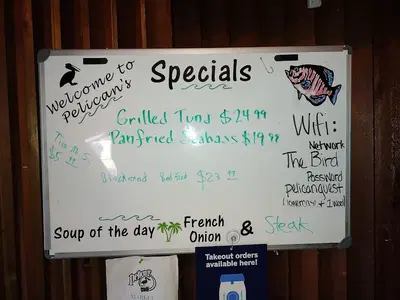 Welcome to
Pelican's
Specials
Grilled Tuna $24.99
Panfried Seabass $19.99
$5.99
Blackened $23.99
Wifi:
Network
The Bird
Password
pelicanguest
Soup of the day
French
Onion
&
Steak
Takeout orders
available here!